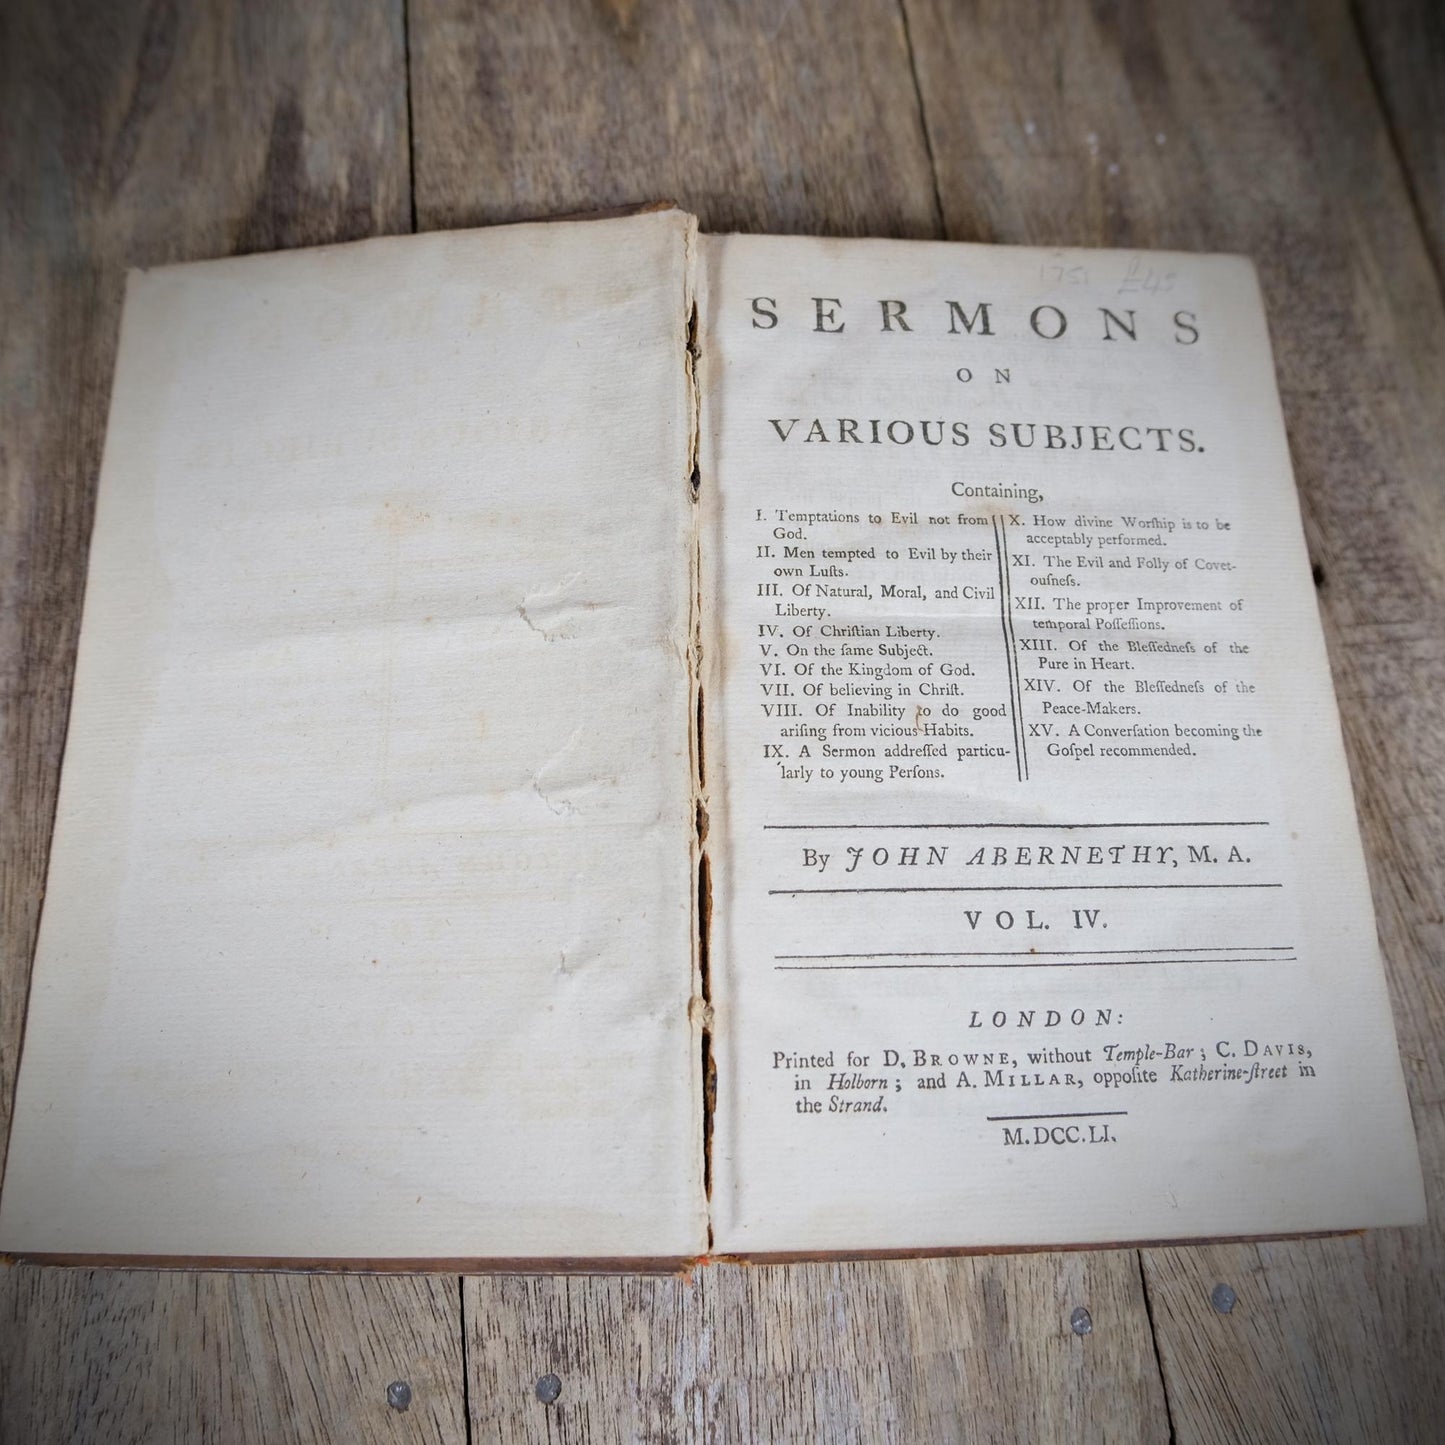 1751 £45
SERMONS
ON
VARIOUS SUBJECTS.
Containing,
I. Temptations to Evil not from
God.
II. Men tempted to Evil by their
own Luſts.
III. Of Natural, Moral, and Civil
Liberty.
IV. Of Chriſtian Liberty.
V. On the ſame Subject.
VI. Of the Kingdom of God.
VII. Of believing in Chriſt.
VIII. Of Inability to do good
ariſing from vicious Habits.
IX. A Sermon addreſſed particu-
larly to young Perſons.
X. How divine Worſhip is to be
acceptably performed.
XI. The Evil and Folly of Covet-
ouſneſs.
XII. The proper Improvement of
temporal Poſſeſſions.
XIII. Of the Bleſſedneſs of the
Pure in Heart.
XIV. Of the Bleſſedneſs of the
Peace-Makers.
XV. A Converſation becoming the
Goſpel recommended.
By JOHN ABERNETHY, M. A.
VOL. IV.
LONDON:
Printed for D. BROWNE, without Temple-Bar; C. DAVIS,
in Holborn; and A. MILLAR, oppoſite Katherine-ſtreet in
the Strand.
M.DCC.LI.